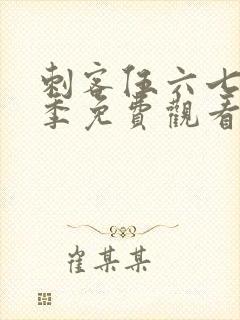 刺客伍六七
季免費觀看
崔某某